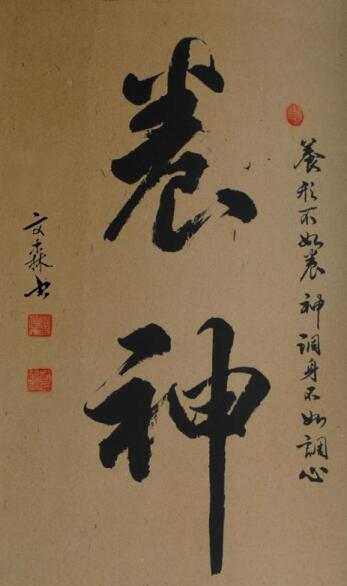 養形不如養神調身不如調心
養神
文森書